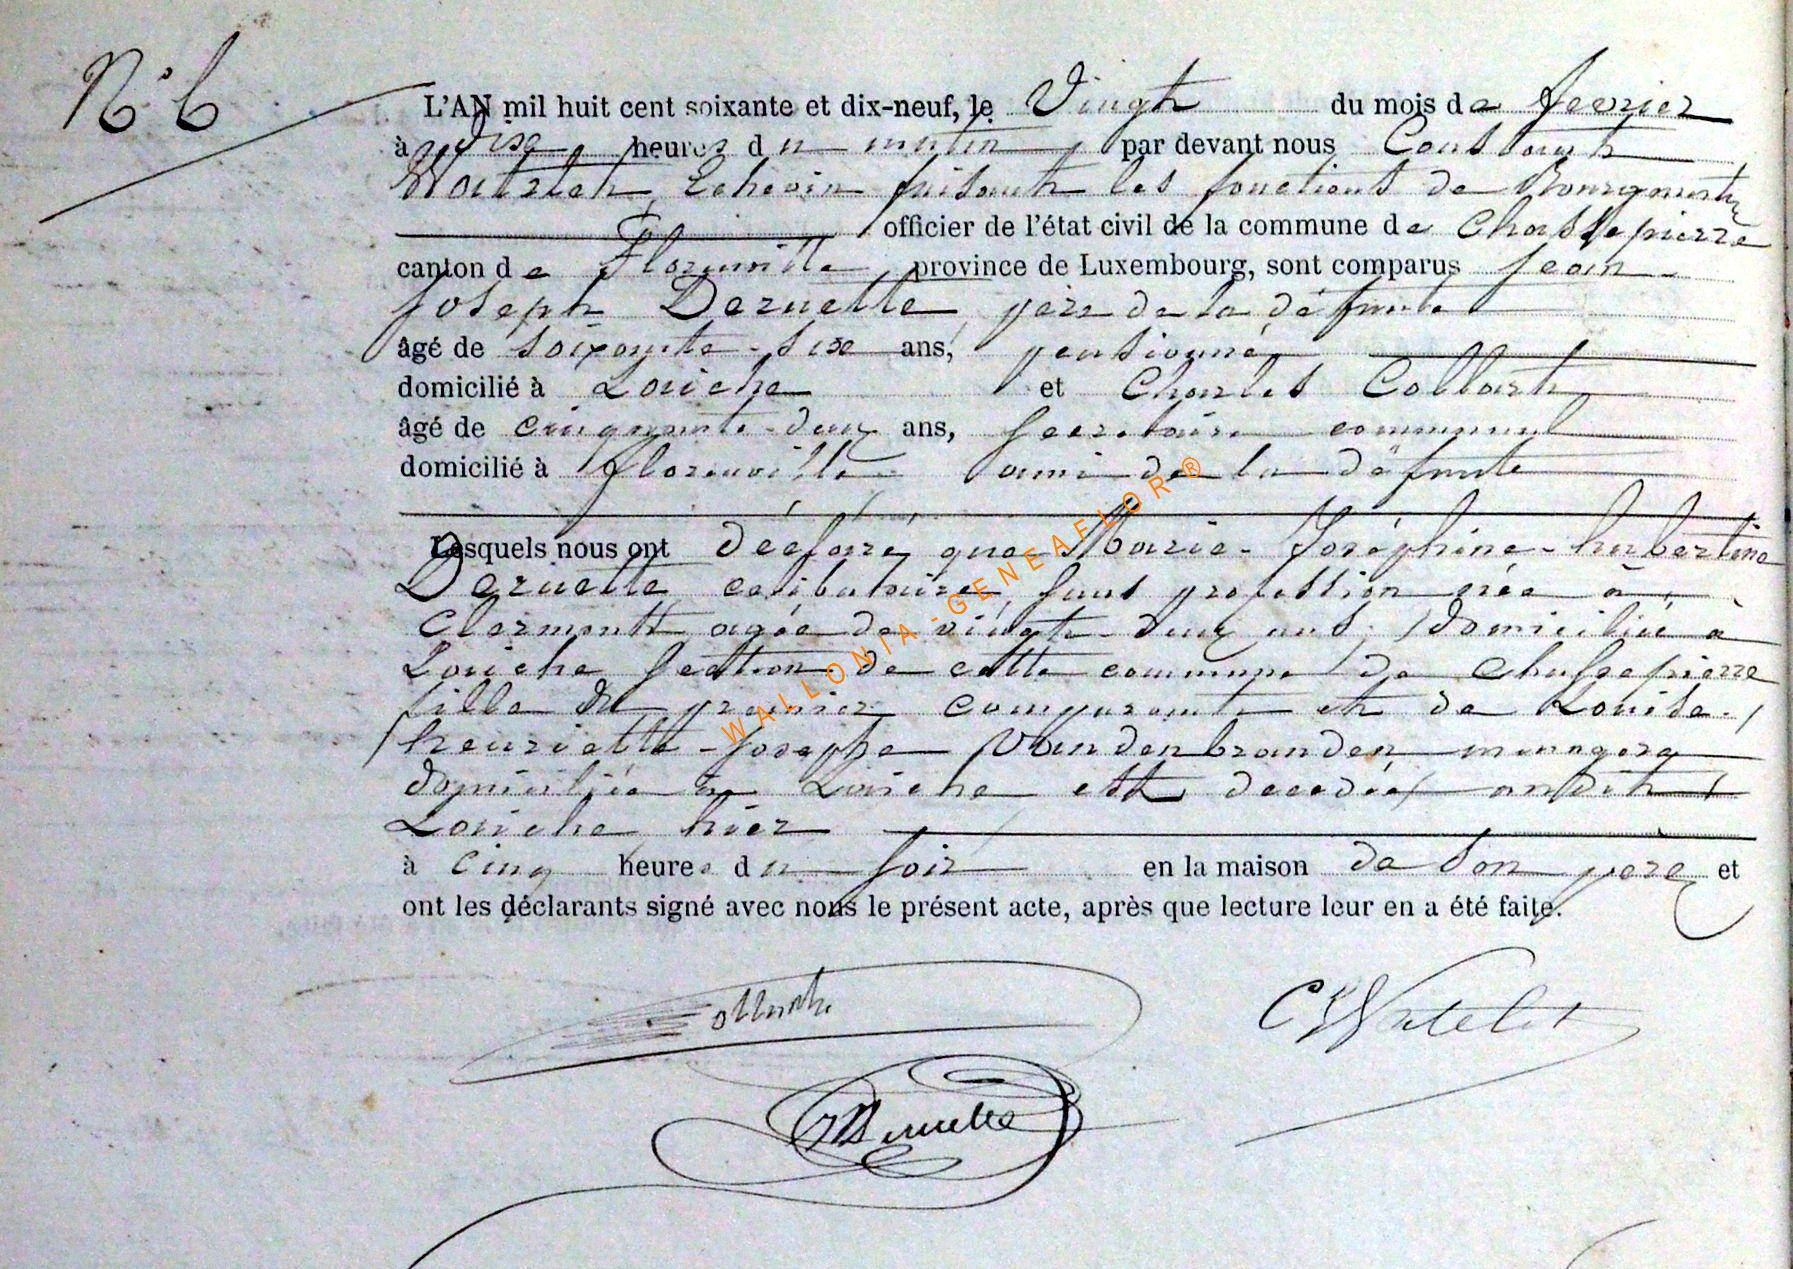 N° 6
L'AN mil huit cent soixante et dix-neuf, le Vingt du mois de fevrier
à dix heures du matin, par devant nous Constant
Watelet, Echevin faisant les fonctions de Bourgmestre
officier de l'état civil de la commune de Chassepierre
canton de Florenville, province de Luxembourg, sont comparus Jean-
Joseph Deruette père de la défunte
âgé de soixante-six ans, pensionné,
domicilié à Laiche et Charles Collart
âgé de cinquante-deux ans, secrétaire communal
domicilié à florenville ami de la défunte
Lesquels nous ont déclaré que Marie-Joséphine-hubertine
Deruette celibataire, sans profession née à
Clermont, agée de vingt-deux ans, domiciliée à
Laiche section de cette commune de Chassepierre
fille du premier comparant et de Louise-
henriette-Josephe Vandenbranden menagere
domiciliée à Laiche est decedée audit
Laiche hier
à cinq heures du soir en la maison de son père et
ont les déclarants signé avec nous le présent acte, après que lecture leur en a été faite.
Collart
C Watelet
JJDeruette
WALLONIA-GENEAFLOR®